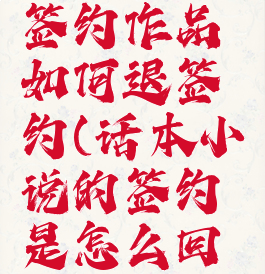 签约作品
如何退签
约(话本小
说的签约
是怎么回